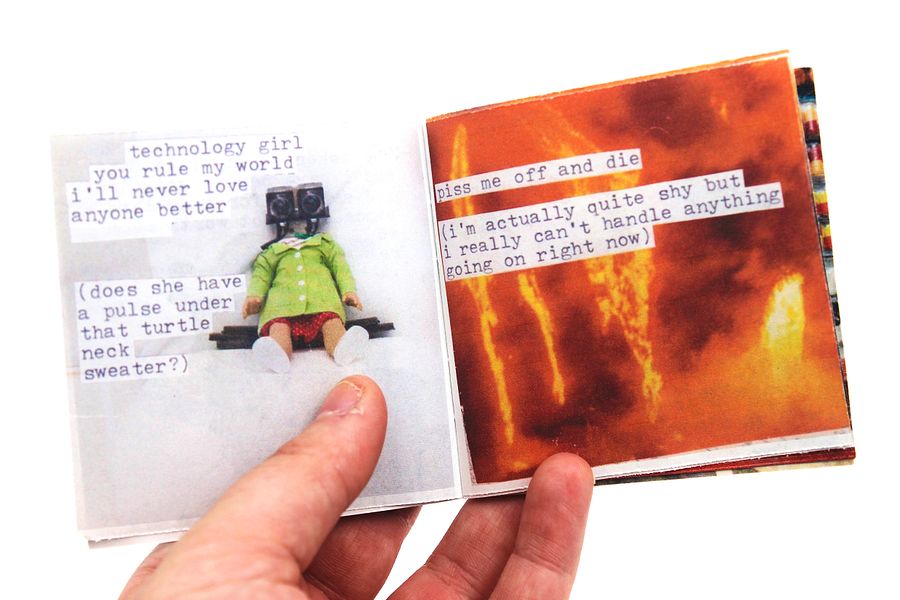 technology girl
you rule my world
i'll never love
anyone better
(does she have
a pulse under
that turtle
neck
sweater?)
piss me off and die
(i'm actually quite shy but
i really can't handle anything
going on right now)